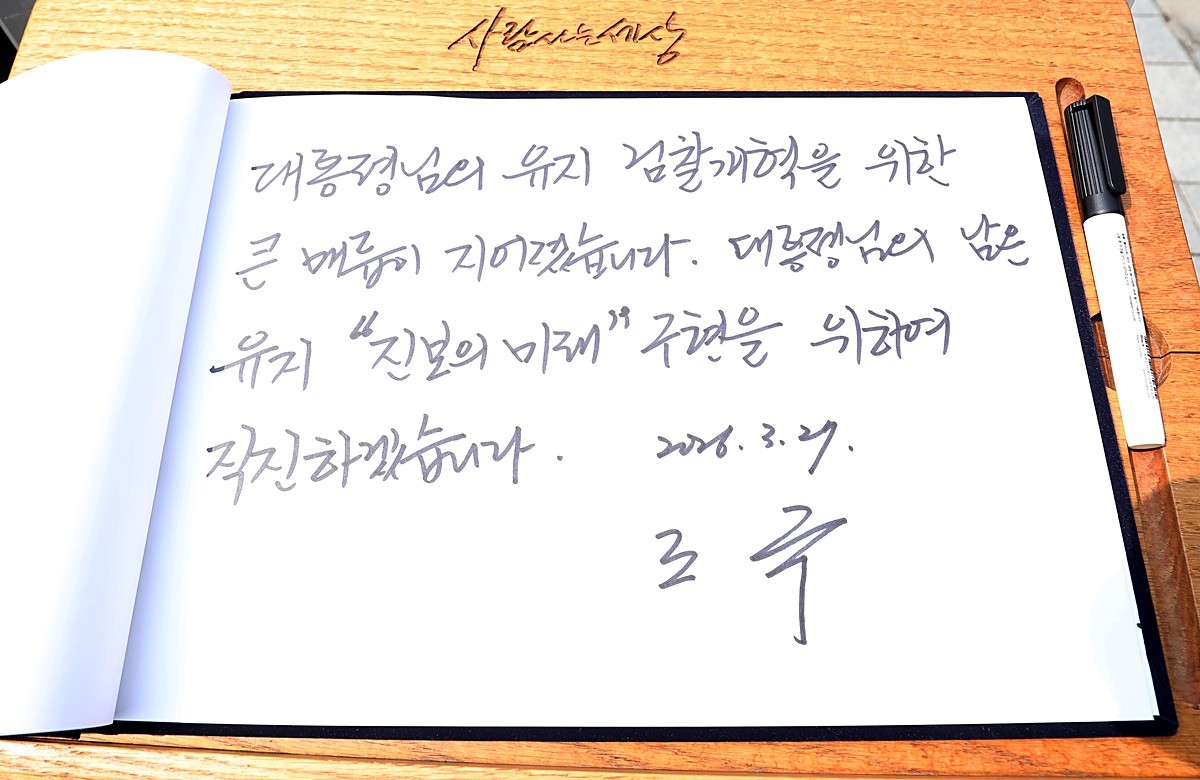 사람사는세상
대통령님의 유지 검찰개혁을 위한
큰 매듭이 지어졌습니다. 대통령님의 남은
유지 "진보의 미래" 구현을 위하여
작진하겠습니다. 2026. 3. 27.
조 국